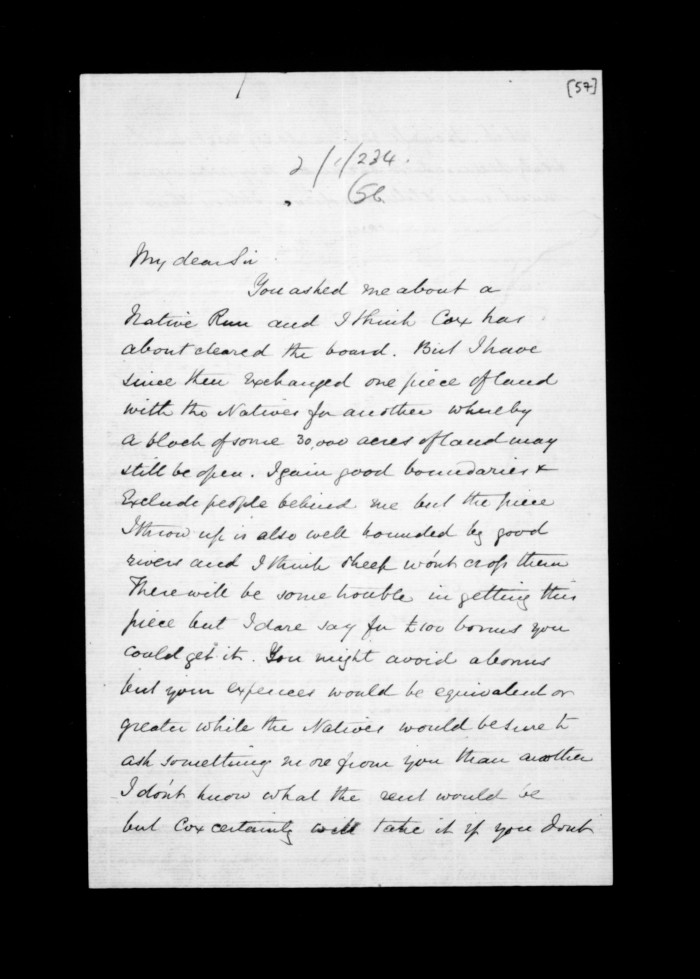 [57]
2/1/234.
My dear Sir
You asked me about a
Native Run and I think Cox has
about cleared the board. But I have
since then exchanged one piece of land
with the Natives for another whereby
a block of some 30,000 acres of land may
still be open. I gain good boundaries &
Exclude people behind me but the piece
I throw up is also well bounded by good
rivers and I think sheep wont crop them
There will be some trouble in getting this
piece but I dare say for £100 bonus you
could get it. You might avoid a bonus
but your expences would be equivalent or
greater while the Natives would be sure to
ask something more from you than another
I don't know what the rent would be
but Cox certainly will take it if you dont